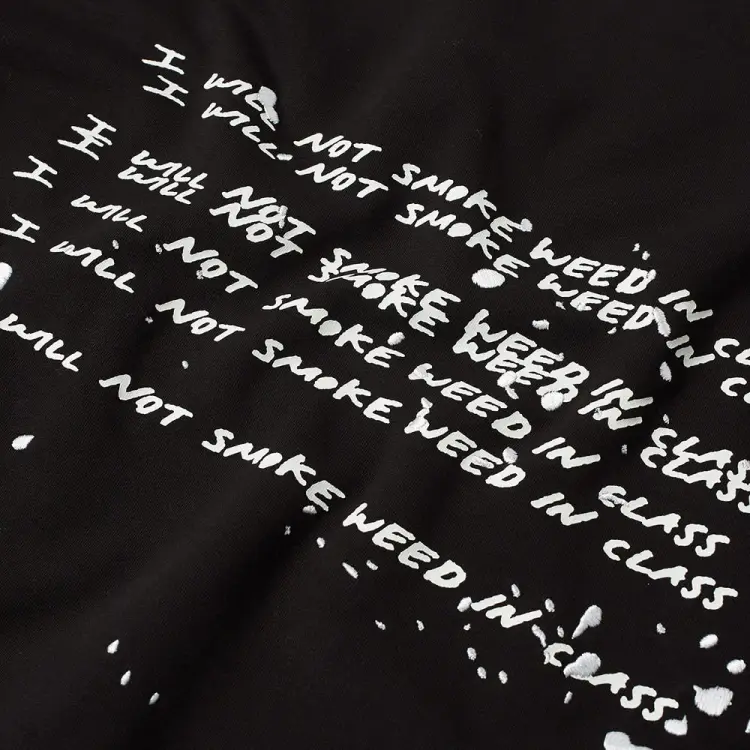 I WILL NOT SMOKE WEED IN CL
I WILL NOT SMOKE WEED IN CL
I WILL NOT SMOKE WEED IN CLASS
I WILL NOT SMOKE WEED IN CLASS
I WILL NOT SMOKE WEED IN CLASS
I WILL NOT SMOKE WEED IN CLASS
WILL NOT SMOKE WEED IN CLASS.